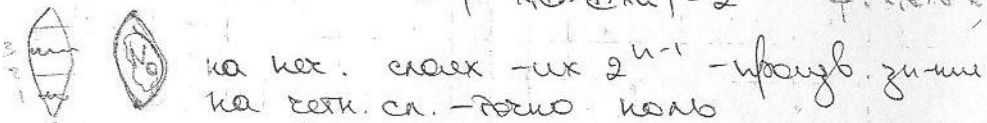 на неч. слоях - их 2^{n-1} - произв. зн-ния
на четн. сл. - точно ноль